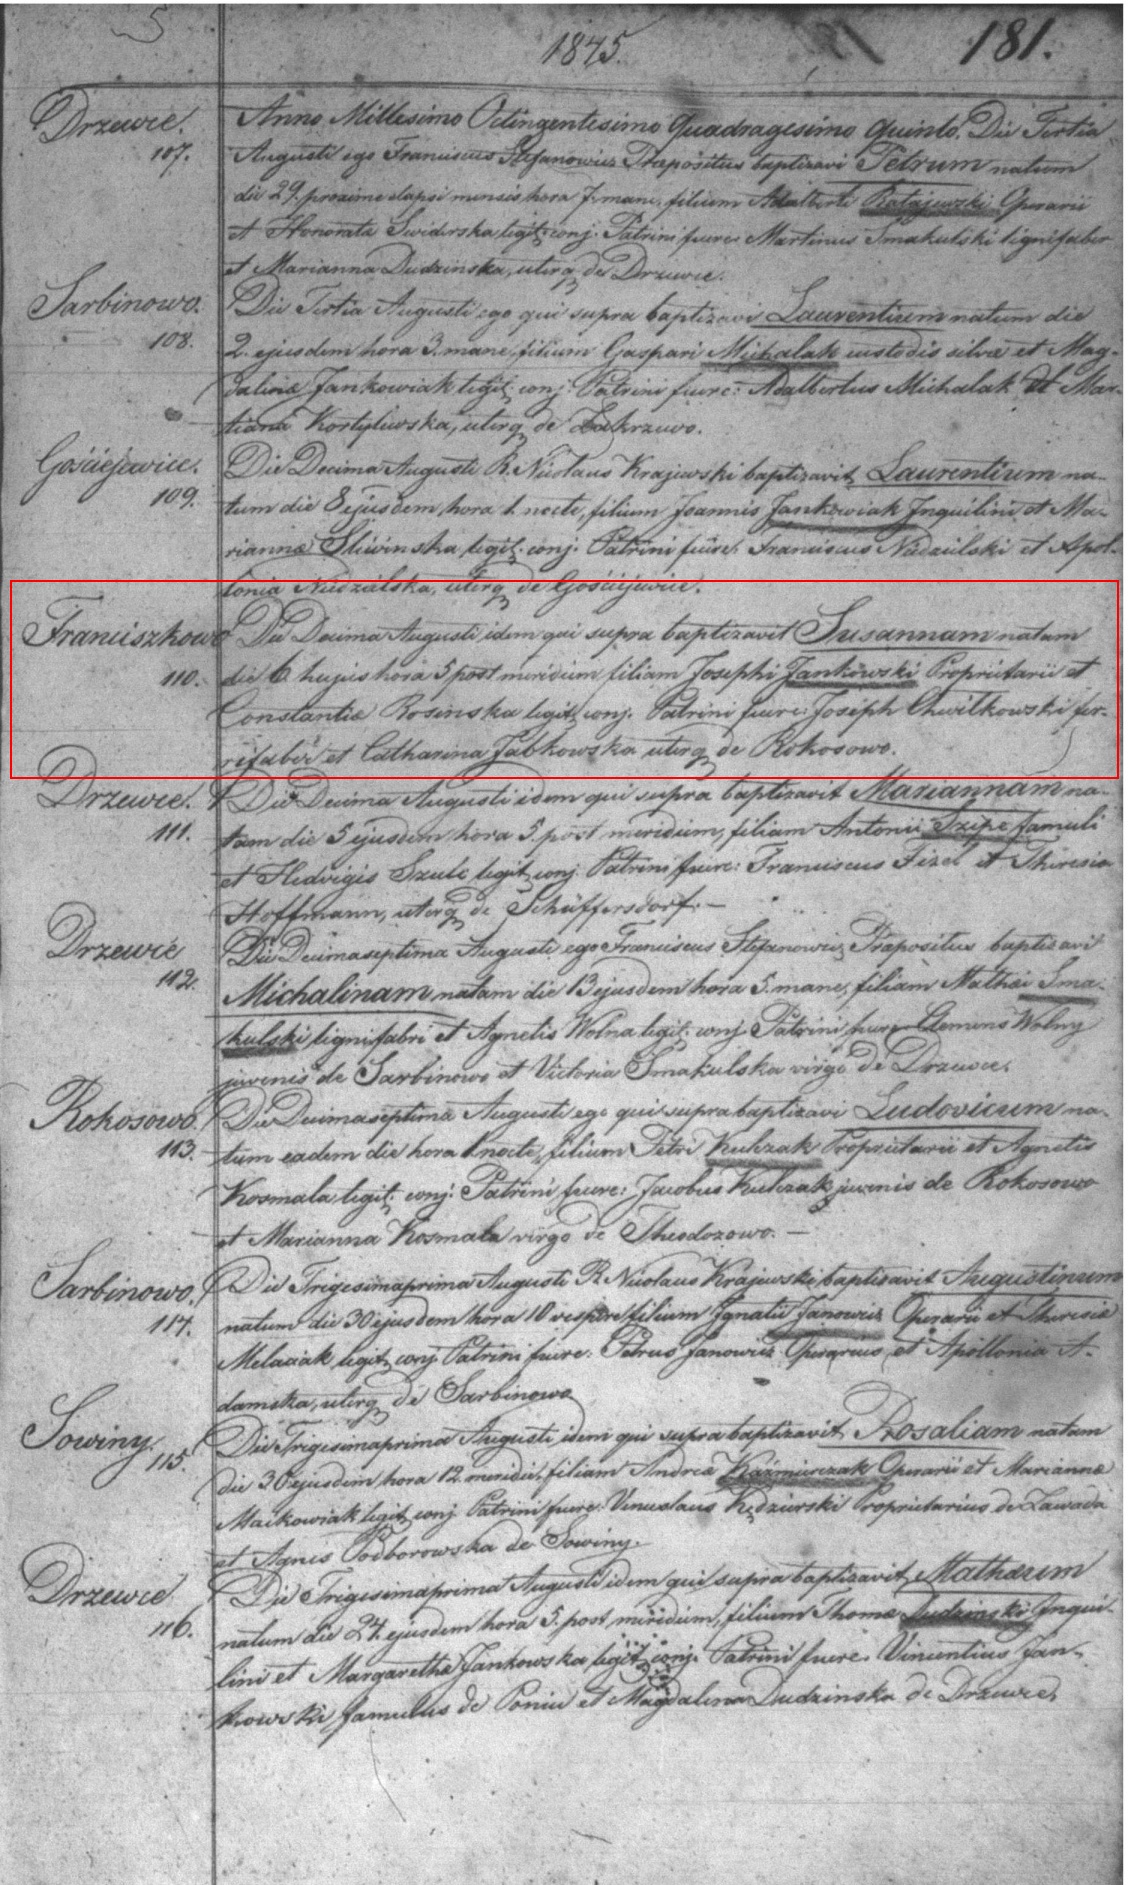 1845.
181.
Drzewce.
107.
Anno Millesimo Octingentesimo Quadragesimo Quinto. Die Tertia
Augusti ego Franciscus Stefanowicz Præpositus baptizavi Petrum natum
die 29. proxime elapsi mensis hora 7. mane, filium Adalberti Ratajewski Operarii
et Honorata Swiderska legit. conj. Patrini fuere Martinus Smakulski lignifaber
et Marianna Dudzinska, uterq de Drzewce.
Sarbinowo.
108.
Die Tertia Augusti ego qui supra baptizavi Laurentium natum die
2. ejusdem hora 3. mane, filium Gaspari Michalak custodis silvæ et Mag-
dalinæ Jankowiak legit. conj. Patrini fuere: Adalbertus Michalak et Mar-
tianna uterq de Zakrzewo.
Gościejewice.
109.
Die Decima Augusti R. Nicolaus Krajewski baptizavit Laurentium na-
tum die 8 ejusdem hora 1. nocte, filium Joannis Jankowiak Inquilini et Ma-
riannæ Sliwinska legit. conj. Patrini fuere Franciscus Niedzielski et Apol-
lonia Niedzielska, uterq de Gościejewice.
Franciszkowo
110.
Die Decima Augusti idem qui supra baptizavit Susannam natam
die 6 hujus hora 5 post meridium filiam Josephi Jankowski Proprietarii et
Constantiæ Rosinska legit. conj. Patrini fuere: Joseph Chwitkowski fer-
rifaber et Catharina Jabkowska uterq de Rokosowo.
Drzewce.
111.
Die Decima Augusti idem qui supra baptizavit Mariannam na-
tam die 5 ejusdem hora 5. post meridium, filiam Antonii Szipe famuli
et Hedvigis Szulc legit. conj. Patrini fuere: Franciscus et Theresia
Hoffmann, uterq de Schäffersdorf. -
Drzewce
112.
Die Decimaseptima Augusti ego Franciscus Stefanowicz Præpositus baptizavi
Michalinam natam die 13 ejusdem hora 5. mane, filiam Mathæi Sma-
kulski lignifabri et Agnetis Wolna legit. conj. Patrini fuere Clemens Wolny
juvenis de Sarbinowo et Victoria Smakulska virgo de Drzewce.
Rokosowo.
113.
Die Decimaseptima Augusti ego qui supra baptizavi Ludovicum na-
tum eadem die hora 1 nocte, filium Petri Kulczak Proprietarii et Agnetis
Kosmala legit. conj. Patrini fuere: Jacobus Kulczak juvenis de Rokosowo
et Marianna Kosmala virgo de Theodozowo. -
Sarbinowo.
114.
Die Trigesimaprima Augusti R. Nicolaus Krajewski baptizavit Augustinum
natum die 30 ejusdem hora 10 vespere filium Ignatii Janowicz Operarii et Theresiæ
legit. conj. Patrini fuere: Petrus Janowicz Operarius et Apollonia A-
damska, uterq de Sarbinowo
Sowiny.
115.
Die Trigesimaprima Augusti idem qui supra baptizavit Rosaliam natam
die 30 ejusdem hora 12. meridii, filiam Andreæ Kaźmierczak Operarii et Mariannæ
Maćkowiak legit. conj. Patrini fuere: Venceslaus Kędzierski Proprietarius de Zawada
et Agnes Podborowska de Sowiny.
Drzewce
116.
Die Trigesimaprima Augusti idem qui supra baptizavit Mathæum
natum die 27. ejusdem hora 5. post meridium, filium Thomæ Dudzinski Inqui-
lini et Margaretha Jankowska legit. conj. Patrini fuere. Vincentius Jan-
kowski famulus de Poniec et Magdalena Dudzinska de Drzewce.